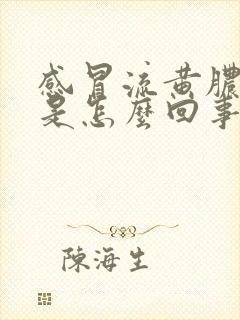 感冒流黄膿
是怎麼回事
陳海生